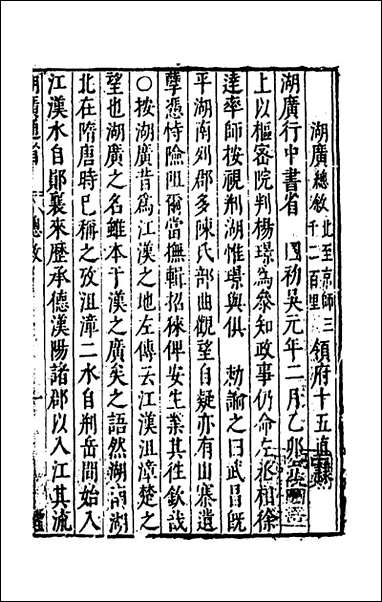 湖廣總敘 北至京師三千二百里 領府十五直
湖廣行中書省 國初吳元年二月乙卯
上以樞密院判楊璟爲參知政事仍命左丞相徐
達率師按視荆湖惟璟與俱 勑諭之曰武昌既
平湖南列郡多陳氏部曲觀望自疑亦有山寨遺
孽憑恃險阻爾當撫輯招徠俾安生業其往欽哉
○按湖廣昔爲江漢之地左傳云江漢沮漳楚之
望也湖廣之名雖本于漢之廣矣之語然湖南湖
北在隋唐時已稱之攷沮漳二水自荆岳間始入
江漢水自鄖襄來歷承德漢陽諸郡以入江其流
總敘